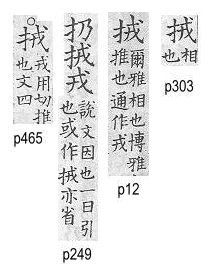 。
戎用切推
也文四
p465
扔戎
說文因也一曰引
也或作亦省
p249
爾雅相也博雅
推也通作戎
p12
相
也
p303